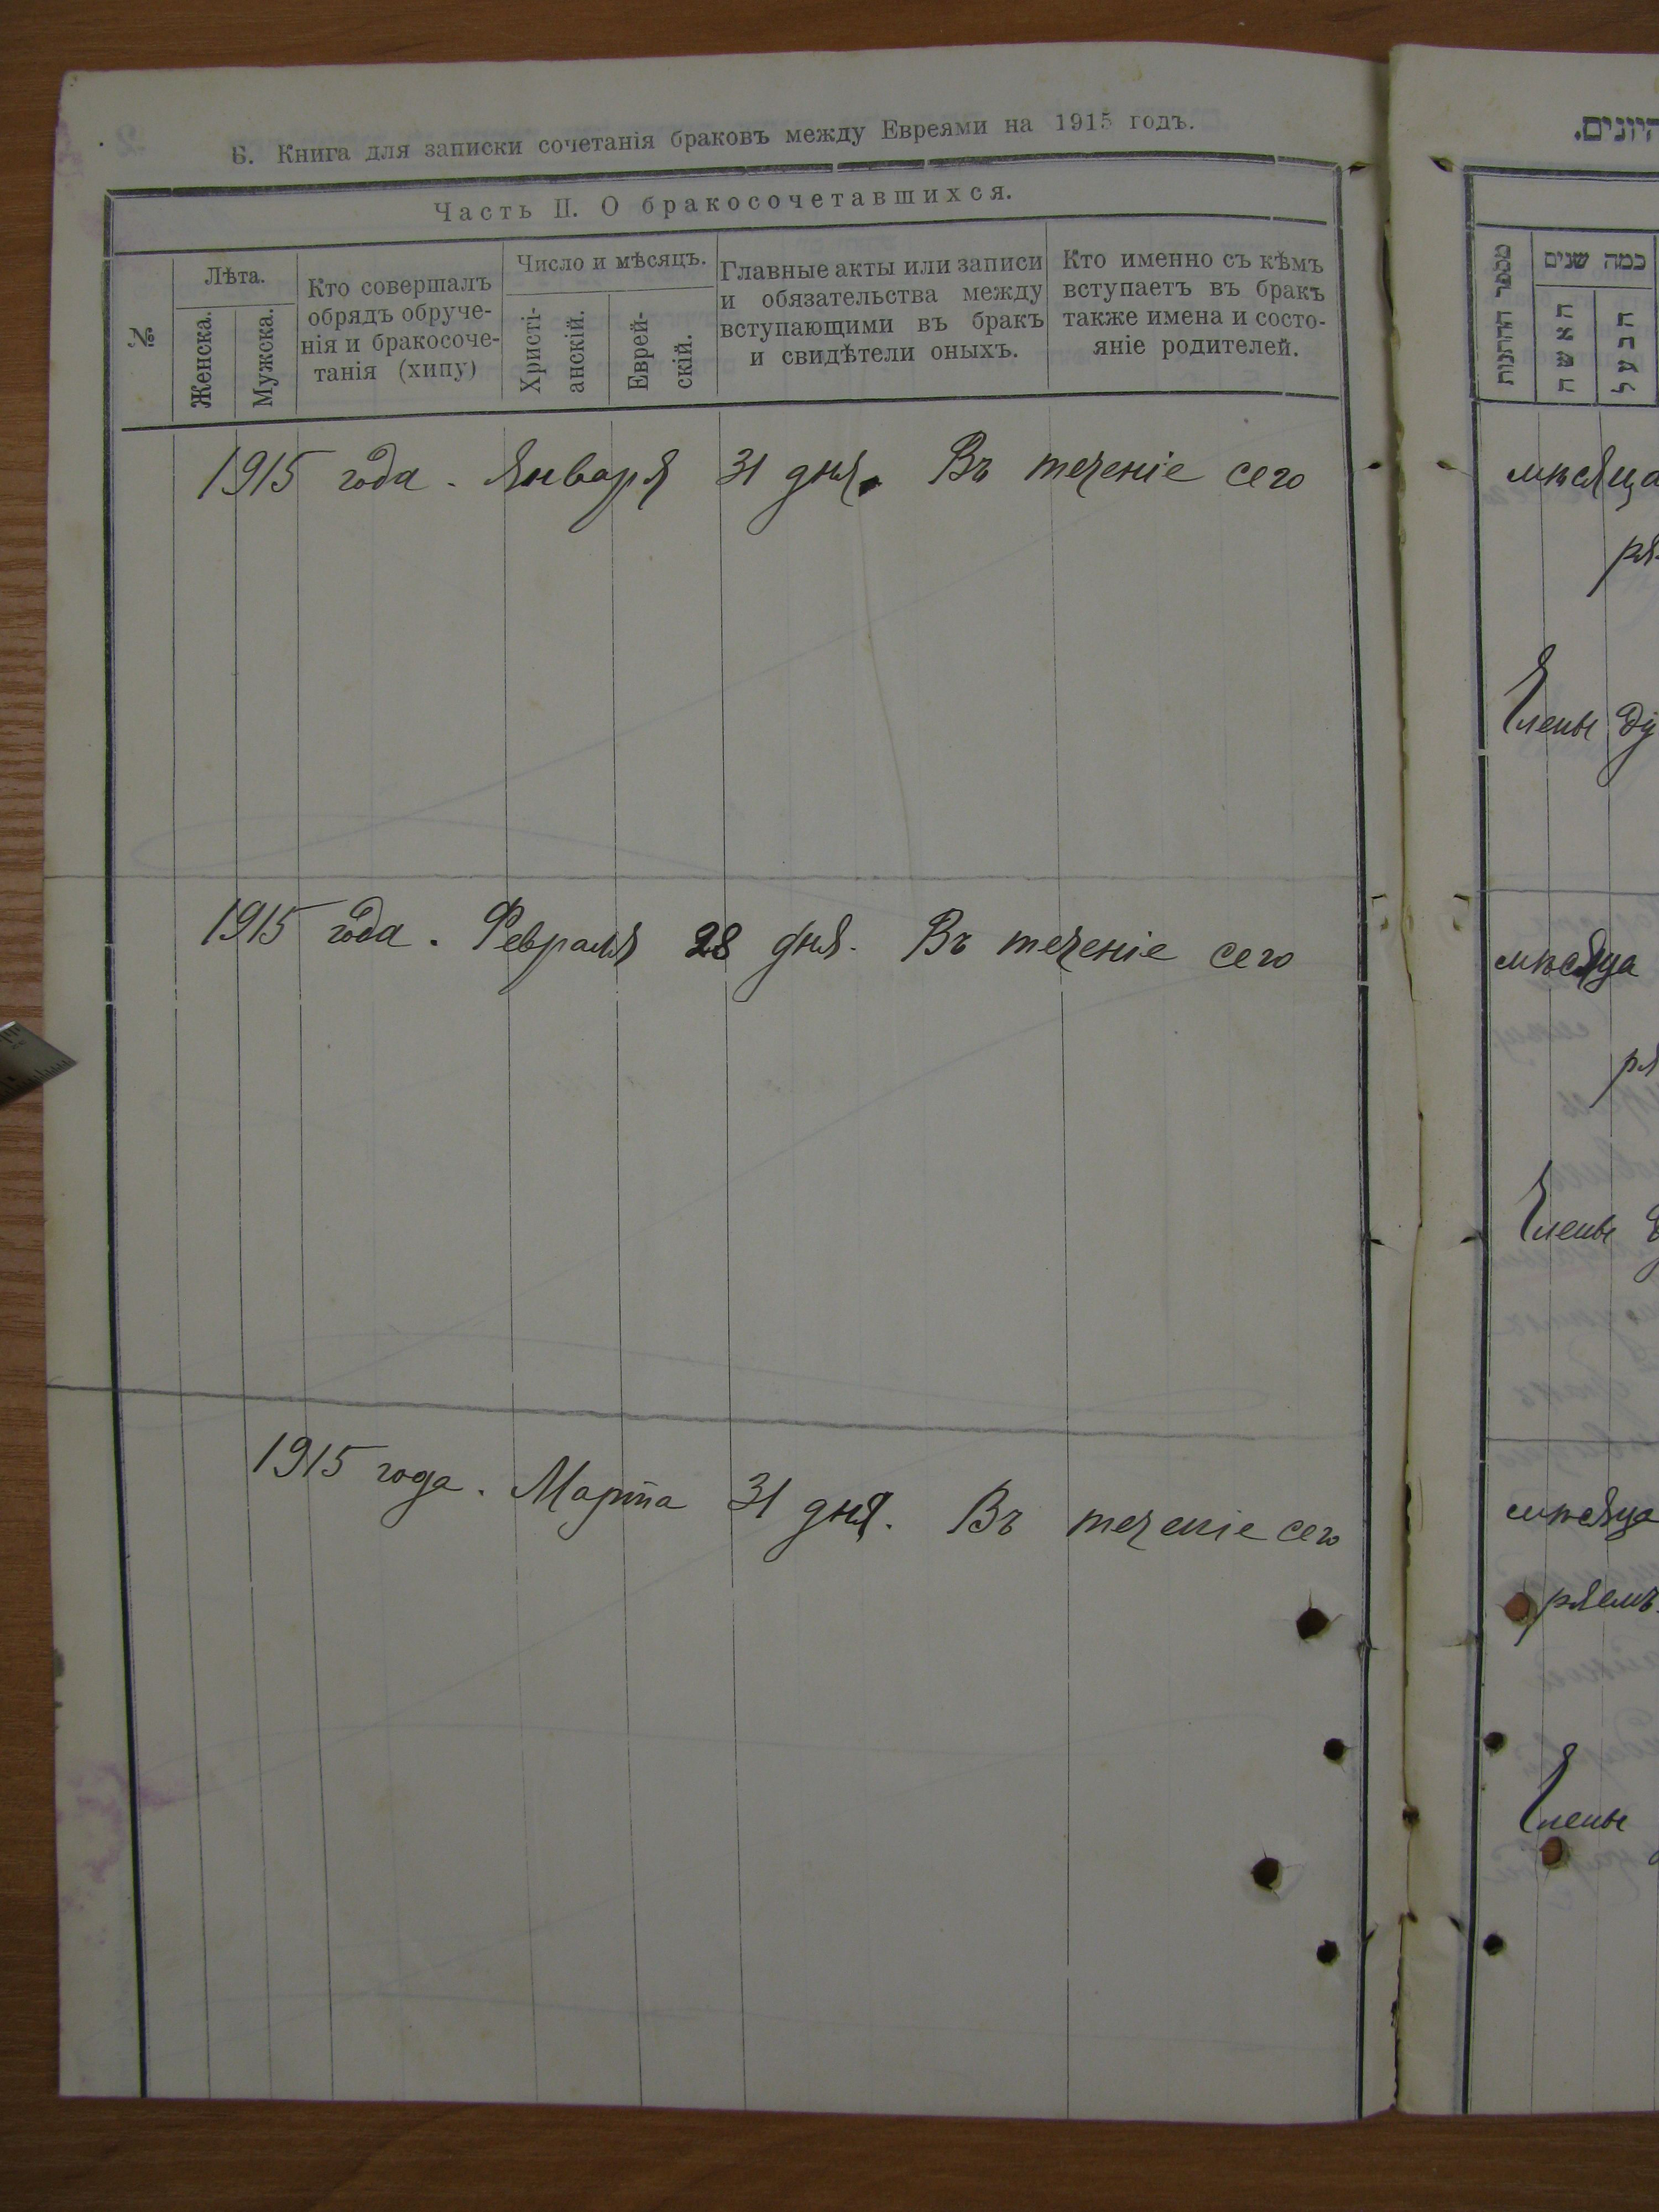 Б. Книга для записки сочетанія браковъ между Евреями на 1915 годъ.
Часть II. О бракосочетавшихся.
№
Лѣта.
Женска.
Мужска.
Кто совершалъ
обрядъ обруче-
нія и бракосоче-
танія (хипу)
Число и мѣсяцъ.
Христі-
анскій.
Еврей-
скій.
Главные акты или записи
и обязательства между
вступающими въ бракъ
и свидѣтели оныхъ.
Кто именно съ кѣмъ
вступаетъ въ бракъ
также имена и состо-
яніе родителей.
1915 года. Января 31 дня. Въ теченіе сего
1915 года. Февраля 28 дня. Въ теченіе сего
1915 года. Марта 31 дня. Въ теченіе сего
כמה שנים
האשה
הבעל
мѣсяца
Члены
мѣсяца
Члены
мѣсяца
Члены